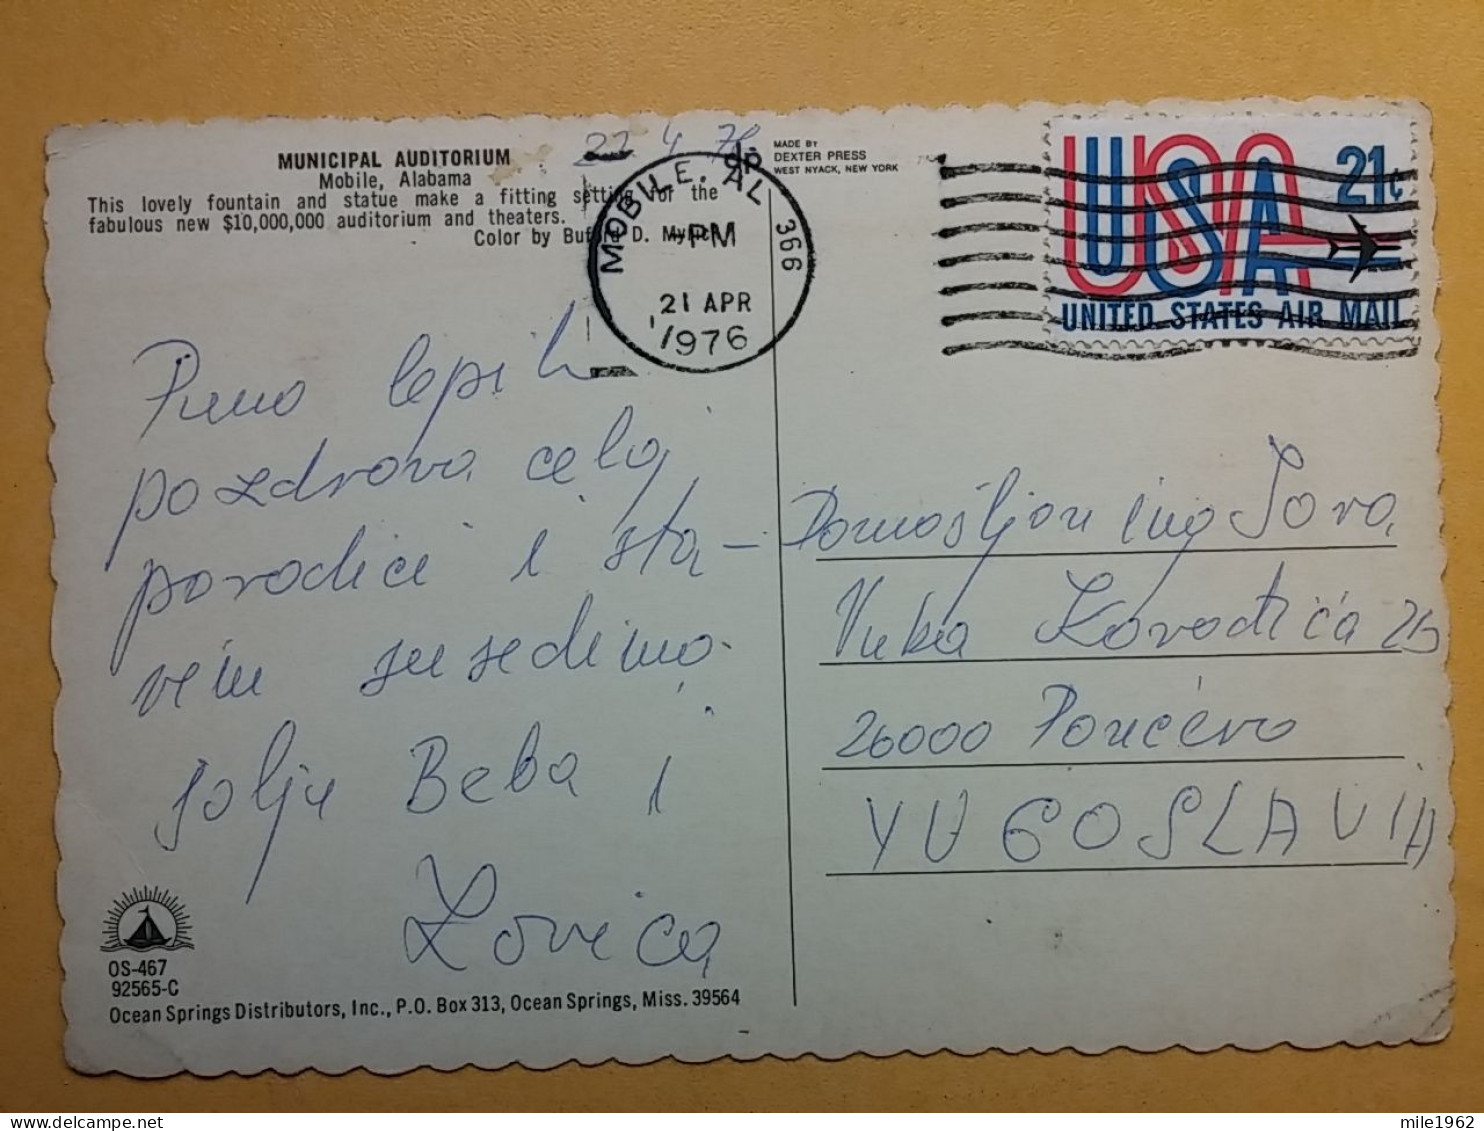 MUNICIPAL AUDITORIUM
Mobile, Alabama
This lovely fountain and statue make a fitting setting for the
fabulous new $10,000,000 auditorium and theaters.
Color by D.
22 4 76
MADE BY
DEXTER PRESS
WEST NYACK, NEW YORK
MOBILE, AL 366
PM
21 APR
1976
USA 21¢
UNITED STATES AIR MAIL
Puno lepih
pozdrava celoj
porodici i sta-
rim susedima
šalju Beba i
Lovica
Vuka Karadžića
26000 Pančevo
YUGOSLAVIA
OS-467
92565-C
Ocean Springs Distributors, Inc., P.O. Box 313, Ocean Springs, Miss. 39564
mile1962